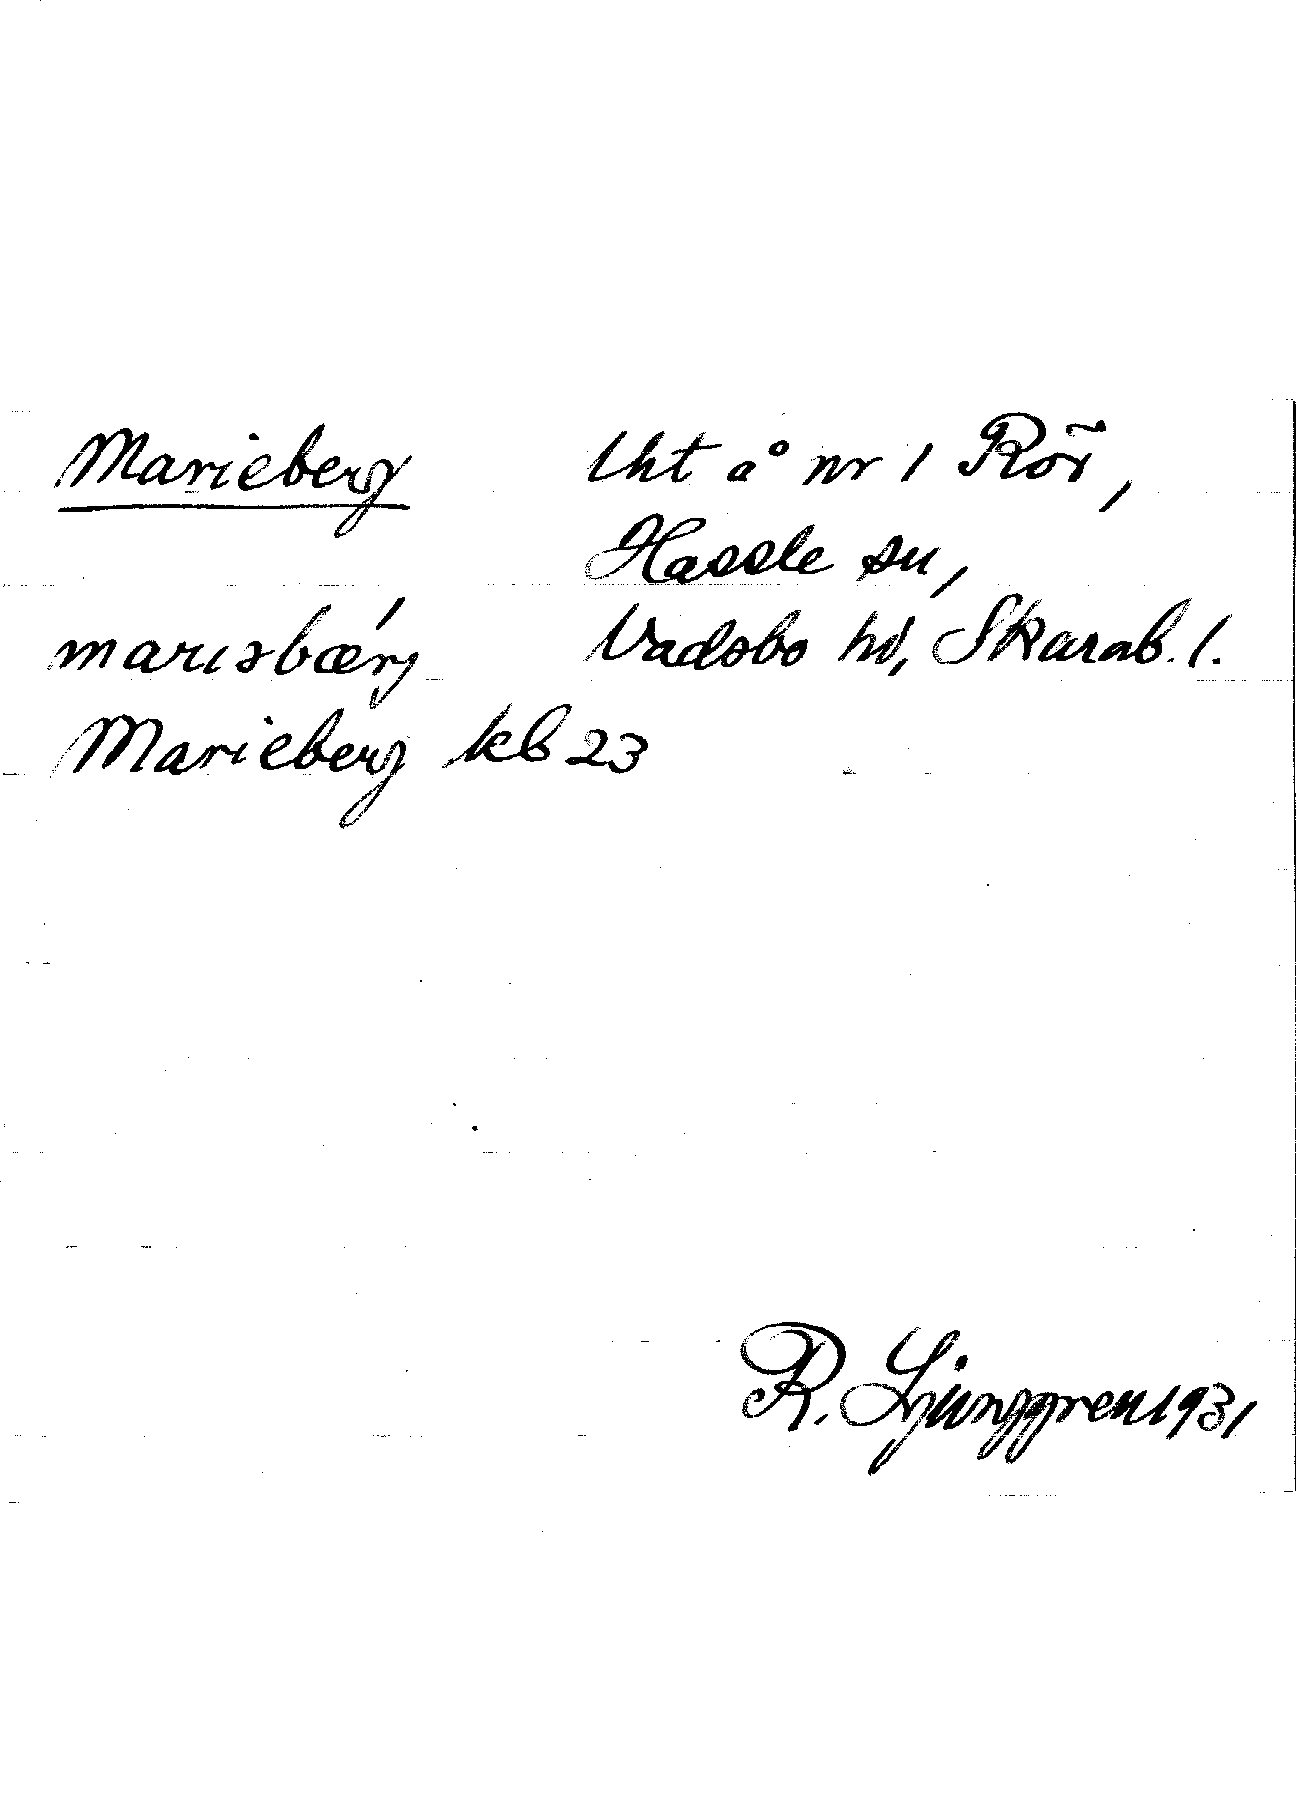 Marieberg
lht å nr 1 Rör,
Hassle sn,
Vadsbo hd, Skarab. l.
marıəbæŕj
Marieberg kb 23
R. Ljunggren 1931